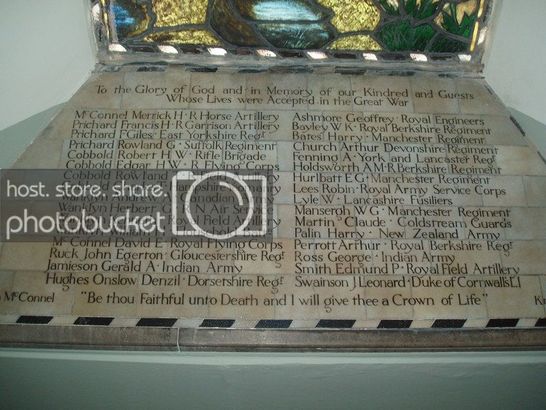 To the Glory of God and in Memory of our Kindred and Guests
Whose Lives were Accepted in the Great War
McConnel Merrick H·R·Horse Artillery
Prichard Francis H·R·Garrison Artillery
Prichard F Giles· East Yorkshire Regt
Prichard Rowland G· Suffolk Regiment
Cobbold Robert H W· Rifle Brigade
Cobbold Edgar F W· R·Flying Corps
Cobbold Rowland
Canadian
Herbert R N Air Service
Royal Field Artillery
McConnel David E· Royal Flying Corps
Ruck John Egerton· Gloucestershire Regt
Jamieson Gerald A· Indian Army
Hughes Onslow Denzil· Dorsetshire Regt
Ashmore Geoffrey· Royal Engineers
Bayley W K· Royal Berkshire Regiment
Bates Harry· Manchester Regiment
Church Arthur· Devonshire Regiment
Fenning A· York and Lancaster Regt
Holdsworth A M· R·Berkshire Regiment
Hurlbatt E G· Manchester Regiment
Lees Robin· Royal Army Service Corps
Lyle W· Lancashire Fusiliers
Mansergh W G· Manchester Regiment
Martin Claude· Coldstream Guards
Palin Harry· New Zealand Army
Perrott Arthur· Royal Berkshire Regt
Ross George· Indian Army
Smith Edmund P· Royal Field Artillery
Swainson J. Leonard· Duke of Cornwalls L.I
McConnel "Be thou Faithful unto Death and I will give thee a Crown of Life"
host. store. share.
photobucket